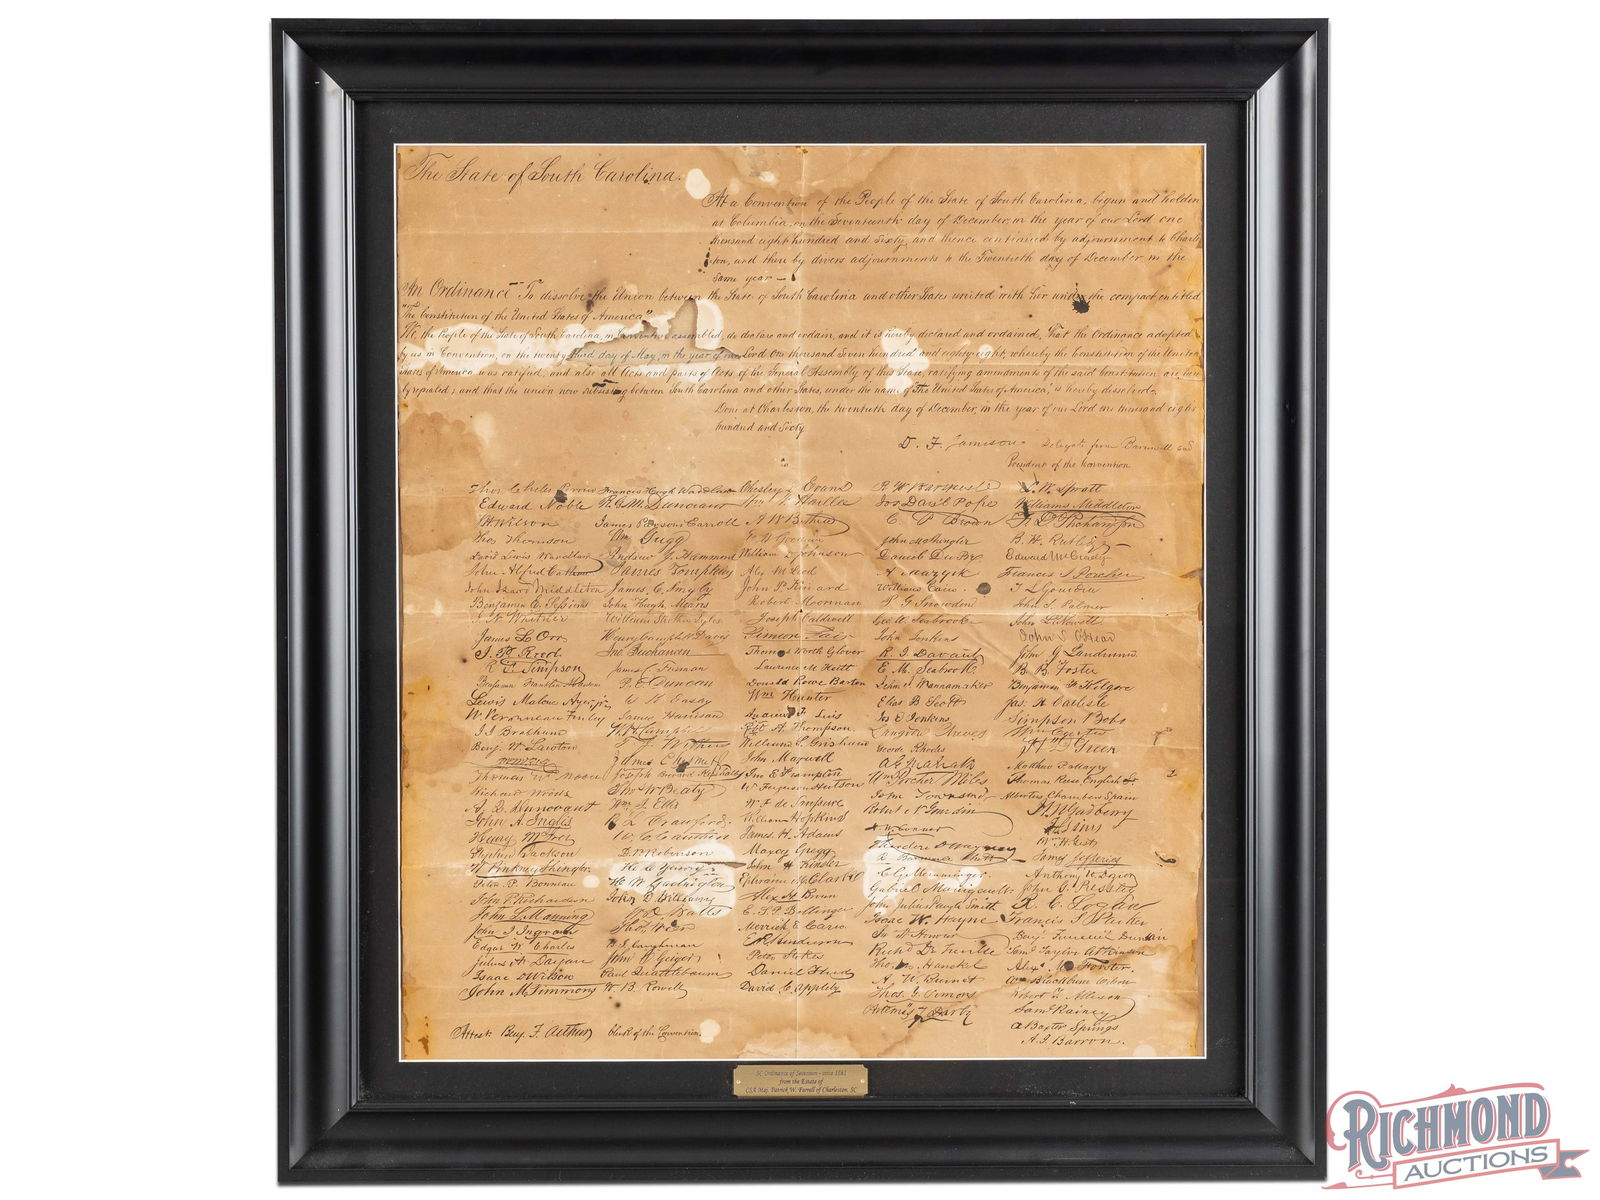 The State of South Carolina.
At a Convention of the People of the State of South Carolina, begun and holden
at Columbia, on the Seventeenth day of December, in the year of our Lord one
thousand eight hundred and Sixty, and thence continued by adjournment to Charles
ton, and there by divers adjournments to the Twentieth day of December in the
same year –
An Ordinance To dissolve the Union between the State of South Carolina and other States united with her under the compact entitled
"The Constitution of the United States of America"
We the People of the State of South Carolina, in Convention assembled, do declare and ordain, and it is hereby declared and ordained, That the Ordinance adopted
by us in Convention, on the twenty third day of May, in the year of our Lord One thousand Seven hundred and eighty eight, whereby the Constitution of the United
States of America was ratified, and also all Acts and parts of Acts of the General Assembly of this State, ratifying amendments of the said Constitution are here
by repealed; and that the union now subsisting between South Carolina and other States, under the name of "The United States of America," is hereby dissolved.
Done at Charleston, the twentieth day of December, in the year of our Lord one thousand eight
hundred and Sixty
D. F. Jamison Delegate from Barnwell and
President of the Convention
Thos Chiles Perrin
Edward Noble
J H Wilson
Thos Thomson
David Lewis Wardlaw
John Alfred Calhoun
John Izard Middleton
Benjamin E. Sessions
J. N. Whitner
James L. Orr
J. P. Reed
R. F. Simpson
Benjamin Franklin
Lewis Malone Ayer, jr.
W. Peronneau Finley
J. J. Brabham
Benj. W. Lawton
Thomas W. Moore
Richard Woods
A. Q. Dunovant
John A. Inglis
Henry McIver
Stephen Jackson
W. Pinkney Shingler
Peter P. Bonneau
John P. Richardson
John L. Manning
John J. Ingram
Edgar W. Charles
Julius A. Dargan
Isaac D Wilson
John M. Timmons
Francis Hugh Wardlaw
R. G. M. Dunovant
James Parsons Carroll
Wm Gregg
Andrew J. Hammond
James Tompkins
James C. Smyly
John Hugh Means
William Strother Lyles
Henry Campbell Davis
Jno Buchanan
James C. Furman
P. E. Duncan
W. K. Easley
James Harrison
W. H. Campbell
T. J. Withers
James Chesnut
Joseph Brevard Kershaw
Thos W Beaty
Wm J. Ellis
R. L. Crawford
W. C. Cauthen
D. P. Robinson
H. C. Young
H. W. Garlington
John D. Williams
W. D. Watts
Thos. Wier
H. I. Caughman
John C Geiger
Paul Quattlebaum
W. B. Rowell
Chesley D. Evans
Wm W Harllee
A. W. Bethea
E. W. Goodwin
William D. Johnson
Alex McLeod
John P. Kinard
Robert Moorman
Joseph Caldwell
Simeon Fair
Thomas Worth Glover
Lawrence M. Keitt
Donald Rowe Barton
Wm Hunter
Andrew F. Lewis
Robt A. Thompson
William S. Grisham
John Maxwell
Jno E Frampton
W Ferguson Hutson
W. F. de Saussure
William Hopkins
James H. Adams
Maxcy Gregg
John H Kinsler
Ephraim M. Clark
Alex H Brown
E. S. P. Bellinger
Merrick E. Carn
E. R. Henderson
Peter Stokes
Daniel Flud
David C. Appleby
R. W. Barnwell
Jos Dan'l Pope
C. P Brown
John M Shingler
Daniel DuPre
A Mazyck
William Cain
P. G. Snowden
Geo W. Seabrook
John Jenkins
R. J. Davant
E. M. Seabrook
John J. Wannamaker
Elias B. Scott
Jos E Jenkins
Langdon Cheves
George Rhodes
A. G. Magrath
Wm Porcher Miles
John Townsend
Robert N. Gourdin
H. W. Conner
Theodore D Wagner
R. Barnwell Rhett
C. G. Memminger
Gabriel Manigault
John Julius Pringle Smith
Isaac W. Hayne
Jn H. Honour
Rich'd De Treville
Thos. M. Hanckel
A. W. Burnet
Thos. Y. Simons
Artemas T. Darby
L. W. Spratt
Williams Middleton
F. D. Richardson
B. H. Rutledge
Edward McCrady
Francis J. Porcher
T. L. Gourdin
John S. Palmer
John L. Nowell
John S. O'Hear
John G. Landrum
B. B. Foster
Benjamin F. Kilgore
Jas. H. Carlisle
Simpson Bobo
Wm Curtis
H D Green
Matthew P. Mayes
Thomas Reese English Sr
Albertus Chambers Spain
J. M. Gadberry
J. S. Sims
Wm H. Gist
James Jefferies
Anthony W. Dozier
John G. Pressley
R. C. Logan
Francis S. Parker
Benj. Faneuil Dunkin
Sam'l Taylor Atkinson
Alex'r M. Forster
Wm Blackburn Wilson
Robert T. Allison
Sam'l Rainey
A Baxter Springs
A. I. Barron.
Attest: Benj. F. Arthur Clerk of the Convention.
SC Ordinance of Secession - circa 1861
from the Estate of
CSA Maj. Patrick W. Farrell of Charleston, SC
RICHMOND
AUCTIONS